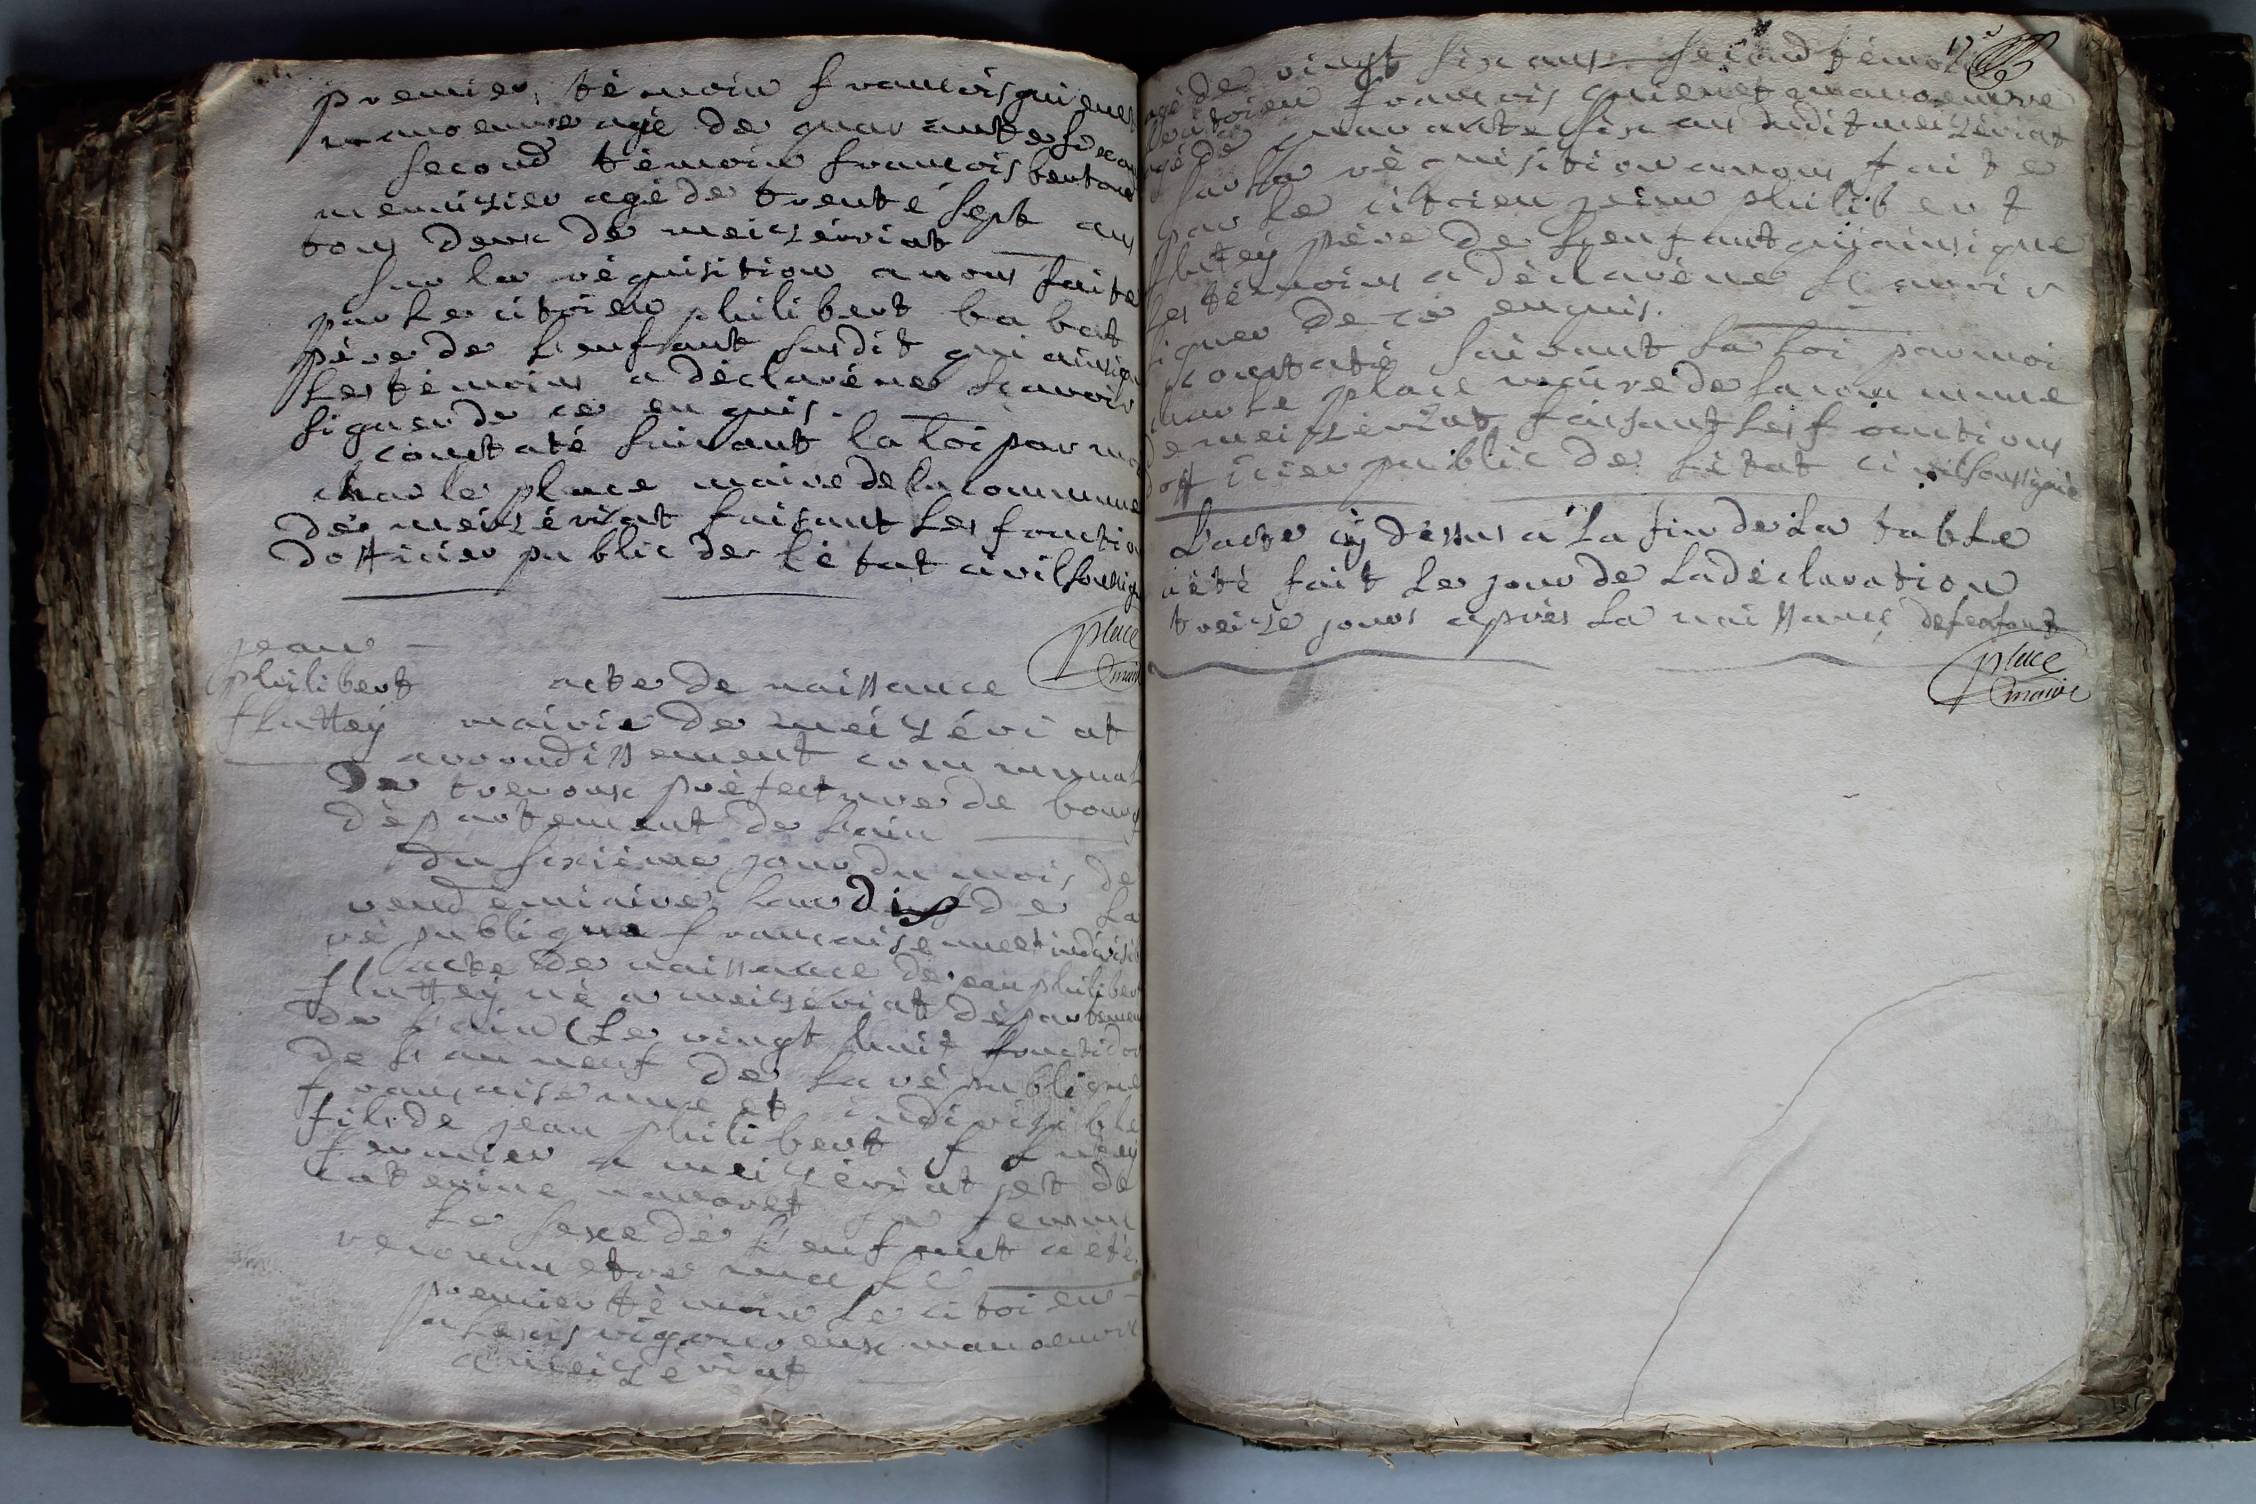 premier témoin francois guienet
manoeuvre agé de quarante six ans
second témoin francois bertou
menuisier agé de trente sept ans
tous deux de meizériat
sur la réquisition a nous faite
par le citoien philibert babat
père de lenfant susdit qui ainsi que
les témoins a déclaré ne scavoir
signer de ce enquis.
constaté suivant la loi par moi
charle place maire de la commune
de meizériat faisant les fonction
dofficier public de létat civil soussigné
place
maire
jean
philibert
fluttey
acte de naissance
mairie de meizériat
arrondissement communal
de trevoux préfecture de bourg
département de lain
du sixième jour du mois de
vendémiaire lan dix de la
république francaise une et indivisib
acte de naissance de jean philiber
fluttey né a meizériat départemen
de lain le vingt huit fructidor
de lan neuf de la république
francaise une et indivisible
fils de jean philibert flutey
fermier a meizériat et de
caterine navoret sa femme
le sexe de lenfant a été
reconnu etre male
premier témoin le citoien
alexis vigoureux manoeuvre
a meizériat
17
agé de vingt six ans second témoin
le citoien francois guienet manoeuvre
agé de quarante six ans dudit meizériat
sur la réquisition a nous faite
par le citoien jean philibert
flutey père de lenfant qui ainsi que
les témoins a déclaré ne scavoir
signer de ce enquis.
constaté suivant la loi par moi
charle place maire de la commune
de meizériat faisant les fonctions
dofficier public de létat civil soussigné
Lacte cy dessus a la fin de la table
a été fait le jour de la déclaration
treize jours après la naissance de lenfant
place
maire